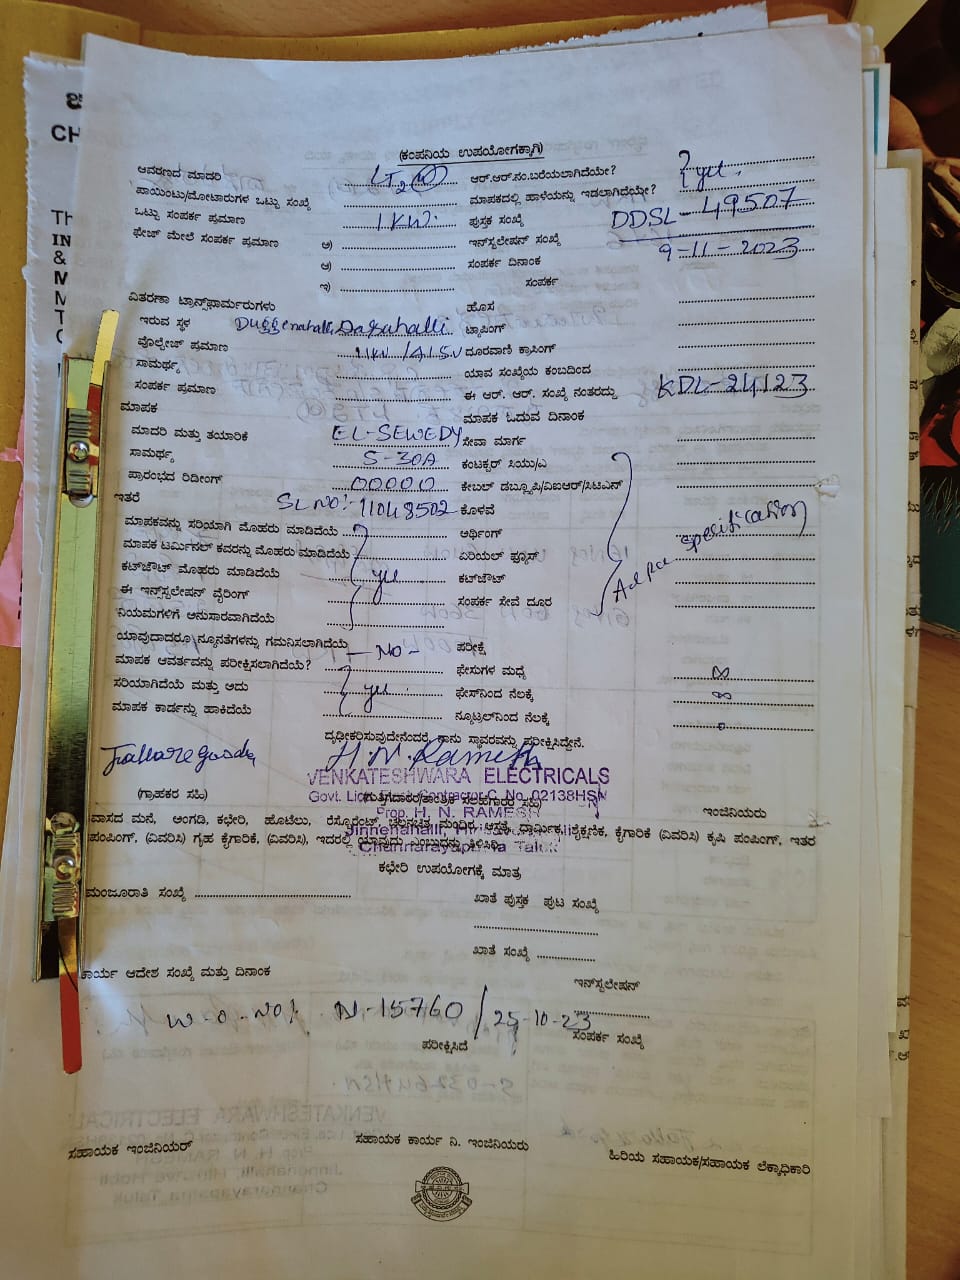 (ಕಂಪನಿಯ ಉಪಯೋಗಕ್ಕಾಗಿ)
ಆವರಣದ ಮಾದರಿ LT2(a) ಆರ್.ಆರ್.ನಂ.ಬರೆಯಲಾಗಿದೆಯೇ?
ಪಾಯಿಂಟು/ಮೋಟಾರುಗಳ ಒಟ್ಟು ಸಂಖ್ಯೆ ಮಾಪಕದಲ್ಲಿ ಹಾಳೆಯನ್ನು ಇಡಲಾಗಿದೆಯೇ? yes.
ಒಟ್ಟು ಸಂಪರ್ಕ ಪ್ರಮಾಣ 1KW. ಪುಸ್ತಕ ಸಂಖ್ಯೆ DDSL-49507
ಫೇಜ್ ಮೇಲೆ ಸಂಪರ್ಕ ಪ್ರಮಾಣ ಅ) ಇನ್‌ಸ್ಟಲೇಷನ್ ಸಂಖ್ಯೆ 9-11-2023
ಆ) ಸಂಪರ್ಕ ದಿನಾಂಕ
ಇ) ಸಂಪರ್ಕ
ವಿತರಣಾ ಟ್ರಾನ್ಸ್‌ಫಾರ್ಮರುಗಳು ಹೊಸ
ಇರುವ ಸ್ಥಳ Duggenahalli, Dasahalli ಟ್ಯಾಪಿಂಗ್
ವೊಲ್ಟೇಜ್ ಪ್ರಮಾಣ 11KV/415V ದೂರವಾಣಿ ಕ್ರಾಸಿಂಗ್
ಸಾಮರ್ಥ್ಯ ಯಾವ ಸಂಖ್ಯೆಯ ಕಂಬದಿಂದ
ಸಂಪರ್ಕ ಪ್ರಮಾಣ ಈ ಆರ್. ಆರ್. ಸಂಖ್ಯೆ ನಂತರದ್ದು KDL-24123
ಮಾಪಕ ಮಾಪಕ ಓದುವ ದಿನಾಂಕ
ಮಾದರಿ ಮತ್ತು ತಯಾರಿಕೆ EL-SEWEDY ಸೇವಾ ಮಾರ್ಗ
ಸಾಮರ್ಥ್ಯ 5-30A ಕಂಟಕ್ಟರ್ ಸಿಯು/ಎ
ಪ್ರಾರಂಭದ ರಿಡೀಂಗ್ 00000 ಕೇಬಲ್ ಡಬ್ಲ್ಯೂಪಿ/ವಿಐಆರ್/ಸಿಟಿಎನ್
ಇತರೆ SL NO:- 11048502 ಕೊಳವೆ
ಮಾಪಕವನ್ನು ಸರಿಯಾಗಿ ಮೊಹರು ಮಾಡಿದೆಯೆ ಅರ್ಥಿಂಗ್
ಮಾಪಕ ಟರ್ಮಿನಲ್ ಕವರನ್ನು ಮೊಹರು ಮಾಡಿದೆಯೆ ಏರಿಯಲ್ ಫ್ಯೂಸ್ specification
ಕಟ್‌ಔಟ್ ಮೊಹರು ಮಾಡಿದೆಯೆ yes ಕಟ್‌ಔಟ್
ಈ ಇನ್‌ಸ್ಟಲೇಷನ್ ವೈರಿಂಗ್ ಸಂಪರ್ಕ ಸೇವೆ ದೂರ
ನಿಯಮಗಳಿಗೆ ಅನುಸಾರವಾಗಿದೆಯೆ
ಯಾವುದಾದರೂ ನ್ಯೂನತೆಗಳನ್ನು ಗಮನಿಸಲಾಗಿದೆಯೆ - No - ಪರೀಕ್ಷೆ
ಮಾಪಕ ಆವರ್ತವನ್ನು ಪರೀಕ್ಷಿಸಲಾಗಿದೆಯೆ? ಫೇಸುಗಳ ಮಧ್ಯೆ ∞
ಸರಿಯಾಗಿದೆಯೆ ಮತ್ತು ಅದು yes ಫೇಸ್‌ನಿಂದ ನೆಲಕ್ಕೆ ∞
ಮಾಪಕ ಕಾರ್ಡನ್ನು ಹಾಕಿದೆಯೆ ನ್ಯೂಟ್ರಲ್‌ನಿಂದ ನೆಲಕ್ಕೆ 0
ದೃಢೀಕರಿಸುವುದೇನೆಂದರೆ, ನಾನು ಸ್ಥಾವರವನ್ನು ಪರೀಕ್ಷಿಸಿದ್ದೇನೆ.
H.N. Ramesh
VENKATESHWARA ELECTRICALS
(ಗ್ರಾಹಕರ ಸಹಿ) Govt. Lice. Elect. Contractor C. No. 02138HSN ಇಂಜಿನಿಯರು
Prop. H. N. RAMESH
ವಾಸದ ಮನೆ, ಅಂಗಡಿ, ಕಛೇರಿ, ಹೋಟೆಲು, ರೆಸ್ಟೋರೆಂಟ್, ಚಲನಚಿತ್ರ ಮಂದಿರ, ಆಸ್ಪತ್ರೆ, ಧಾರ್ಮಿಕ, ಶೈಕ್ಷಣಿಕ, ಕೈಗಾರಿಕೆ (ವಿವರಿಸಿ) ಕೃಷಿ ಪಂಪಿಂಗ್, ಇತರ
Jinnenahalli,
ಪಂಪಿಂಗ್, (ವಿವರಿಸಿ) ಗೃಹ ಕೈಗಾರಿಕೆ, (ವಿವರಿಸಿ), ಇದರಲ್ಲಿ ಯಾವುದು ಎಂಬುದನ್ನು ತಿಳಿಸಿರಿ
Channarayapatna Taluk
ಕಛೇರಿ ಉಪಯೋಗಕ್ಕೆ ಮಾತ್ರ
ಮಂಜೂರಾತಿ ಸಂಖ್ಯೆ ಖಾತೆ ಪುಸ್ತಕ ಪುಟ ಸಂಖ್ಯೆ
ಖಾತೆ ಸಂಖ್ಯೆ
ಕಾರ್ಯ ಆದೇಶ ಸಂಖ್ಯೆ ಮತ್ತು ದಿನಾಂಕ ಇನ್‌ಸ್ಟಲೇಷನ್
W-O-NO:- N-15760/25-10-23
ಪರೀಕ್ಷಿಸಿದೆ ಸಂಪರ್ಕ ಸಂಖ್ಯೆ
ಸಹಾಯಕ ಇಂಜಿನಿಯರ್ ಸಹಾಯಕ ಕಾರ್ಯ ನಿ. ಇಂಜಿನಿಯರು ಹಿರಿಯ ಸಹಾಯಕ/ಸಹಾಯಕ ಲೆಕ್ಕಾಧಿಕಾರಿ